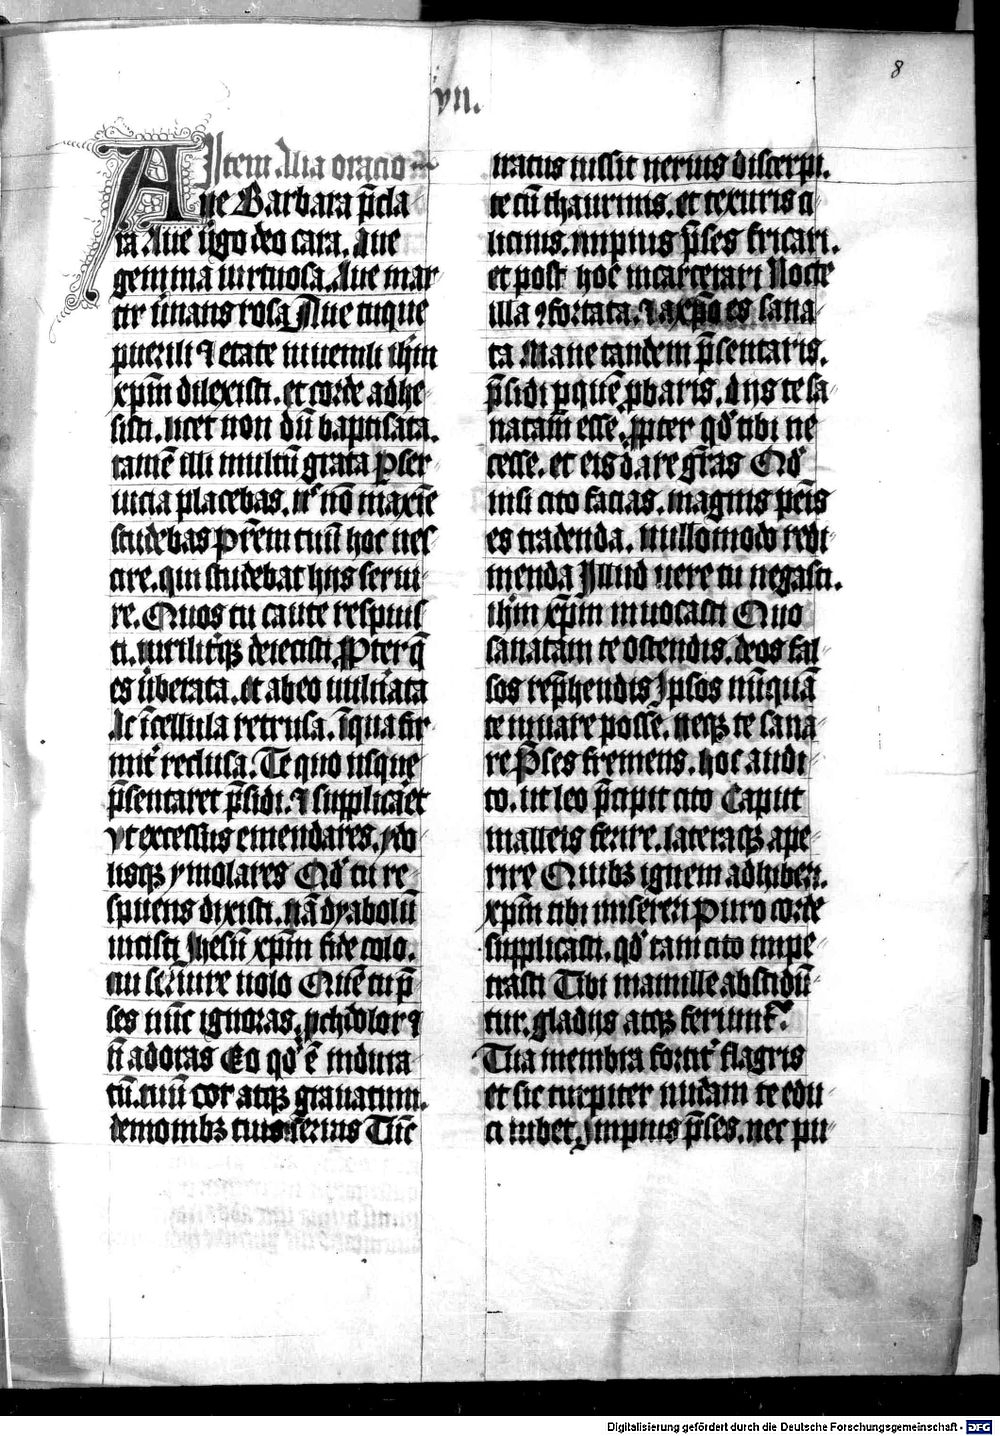 8
vii.
Item Alia oracio
Aue Barbara p̄cla
ra Aue v̄go deo cara. Aue
gemma virtuosa. Aue mar
tir v̄nans rosa Aue cuique
puerili et etate iuuenili ih̄m
xp̄m dilexisti. et corde adhe
sisti. licet non dū baptisata.
tamē illi multū grata
placebas.
studebas Pr̄em tuū hoc nes
cire. qui studebat hijs serui
re. Quos tu caute respuis
ti. viriliterqꝫ deiecisti
es v̄berata. et ab eo vulnerata
Ac ī cellula retrusa. ī qua fir
mit̄ reclusa. Te quo usque
p̄sentaret p̄sidi. et supplicaret
vt excessus emendares. ydo
lisqꝫ ymolares Qd̄ tu re
spuens dixisti. nā dyabolū
vicisti Jhesū xp̄m fide colo.
cui seruire volo Quē tu p̄
ses nūc ignoras. ydolor
adoras Eo qd̄ ē indura
tū. tuū cor atqꝫ grauatum.
demonibꝫ tuis Tūc
iratus iussit neruis discerpi.
te cū thaurinis. et texturis ci
licinis. impius p̄ses fricari.
et post hoc incarcerari Nocte
illa ꝯfortata. et a xp̄o es sana
ta Mane tandem p̄sentaris.
p̄sidi ꝑ quē ꝓbaris. dijs te sa
natam esse. ꝓpter qd̄ tibi ne
cesse. et eis dare gr̄as Qd̄
nisi cito facias. magnis penis
es tradenda. nullomodo redi
menda Illud vere tu negasti.
ih̄m xp̄m inuocasti Quo
sanatam te ostendis. deos fal
sos rep̄hendis Ipsos nūquā
te iuuare posse. neqꝫ te sana
re P̄ses fremens. hoc audi
to. ut leo p̄cipit cito Caput
malleis ferire. lateraqꝫ ape
rire Quibꝫ ignem adhiberi.
xp̄m tibi misereri Puro corde
supplicasti. qd̄ tam cito impe
trasti Tibi mamille abscidū
tur. gladijs atqꝫ feriunt̄.
Tua membra fortit̄ flagris
et sic turpiter nudam te edu
ci iubet. Impius p̄ses. nec pu
Digitalisierung gefördert durch die Deutsche Forschungsgemeinschaft - DFG